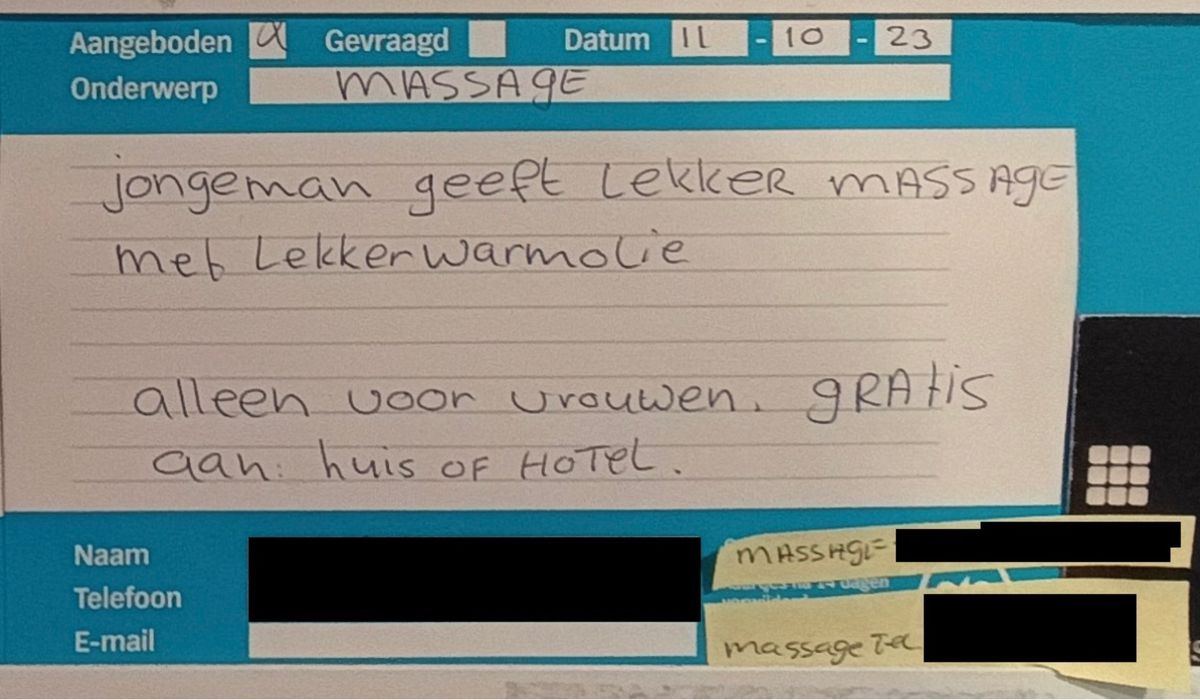 Aangeboden X Gevraagd Datum 11 - 10 - 23
Onderwerp MASSAGE
jongeman geeft LEKKER MASSAGE
met LEkkerwarmolie
alleen voor vrouwen. gRAtis
aan: huis OF HOTEL.
Naam
Telefoon
E-mail
MASSAGE
dagen
massage Tel